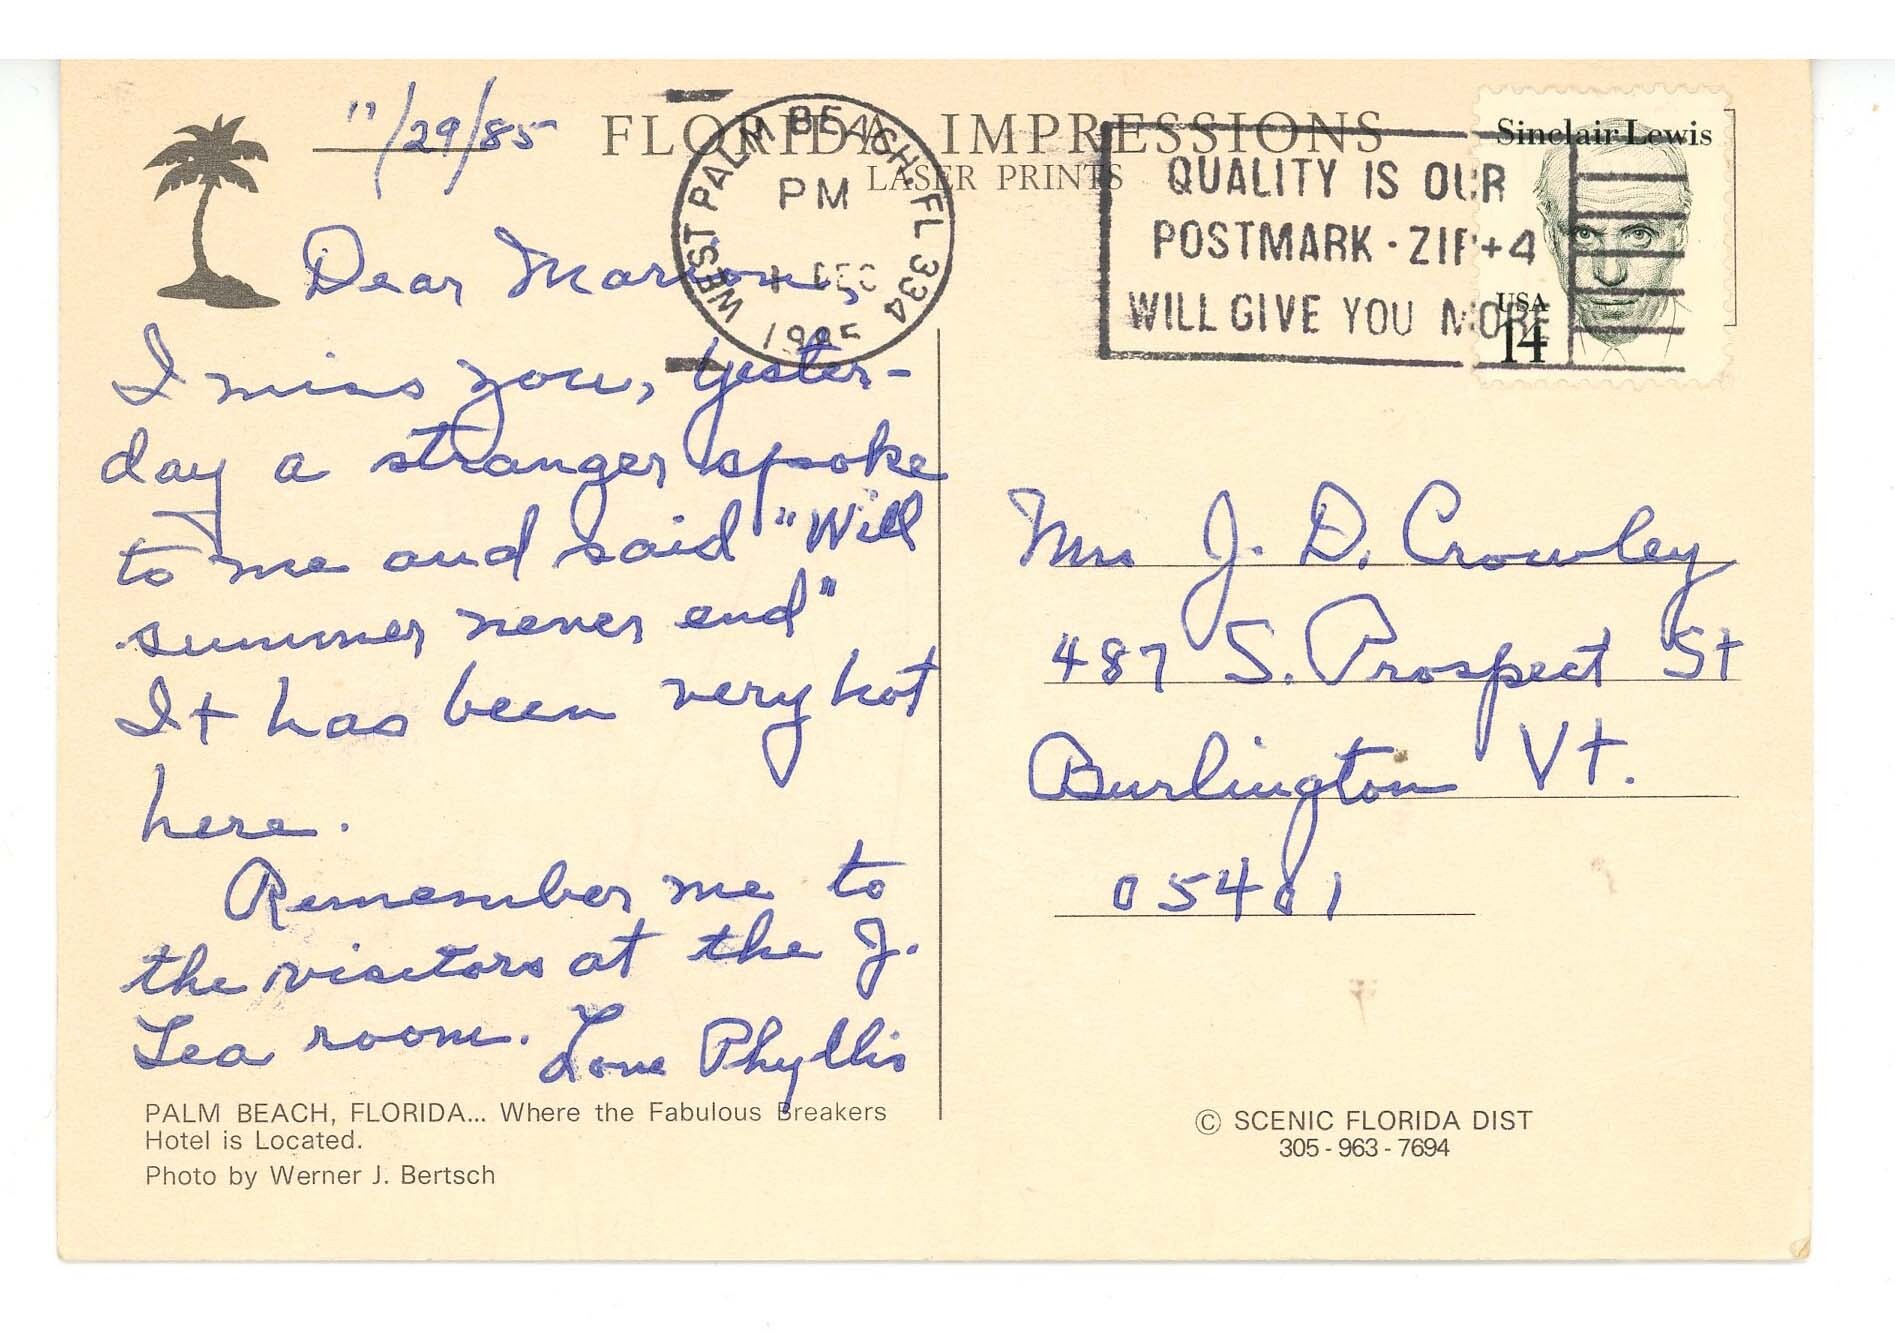 11/29/85
FLORIDA IMPRESSIONS
LASER PRINTS
WEST PALM BEACH, FL 334
PM
DEC
1985
QUALITY IS OUR
POSTMARK · ZIP+4
WILL GIVE YOU MORE
Sinclair Lewis
USA
14
Dear Marion,
I miss you, Yester-
day a stranger spoke
to me and said "Will
summer never end"
It has been very hot
here.
Remember me to
the visitors at the J.
Tea room. Love Phyllis
Mrs J. D. Crowley
487 S. Prospect St
Burlington Vt.
05401
PALM BEACH, FLORIDA... Where the Fabulous Breakers
Hotel is Located.
Photo by Werner J. Bertsch
© SCENIC FLORIDA DIST
305-963-7694